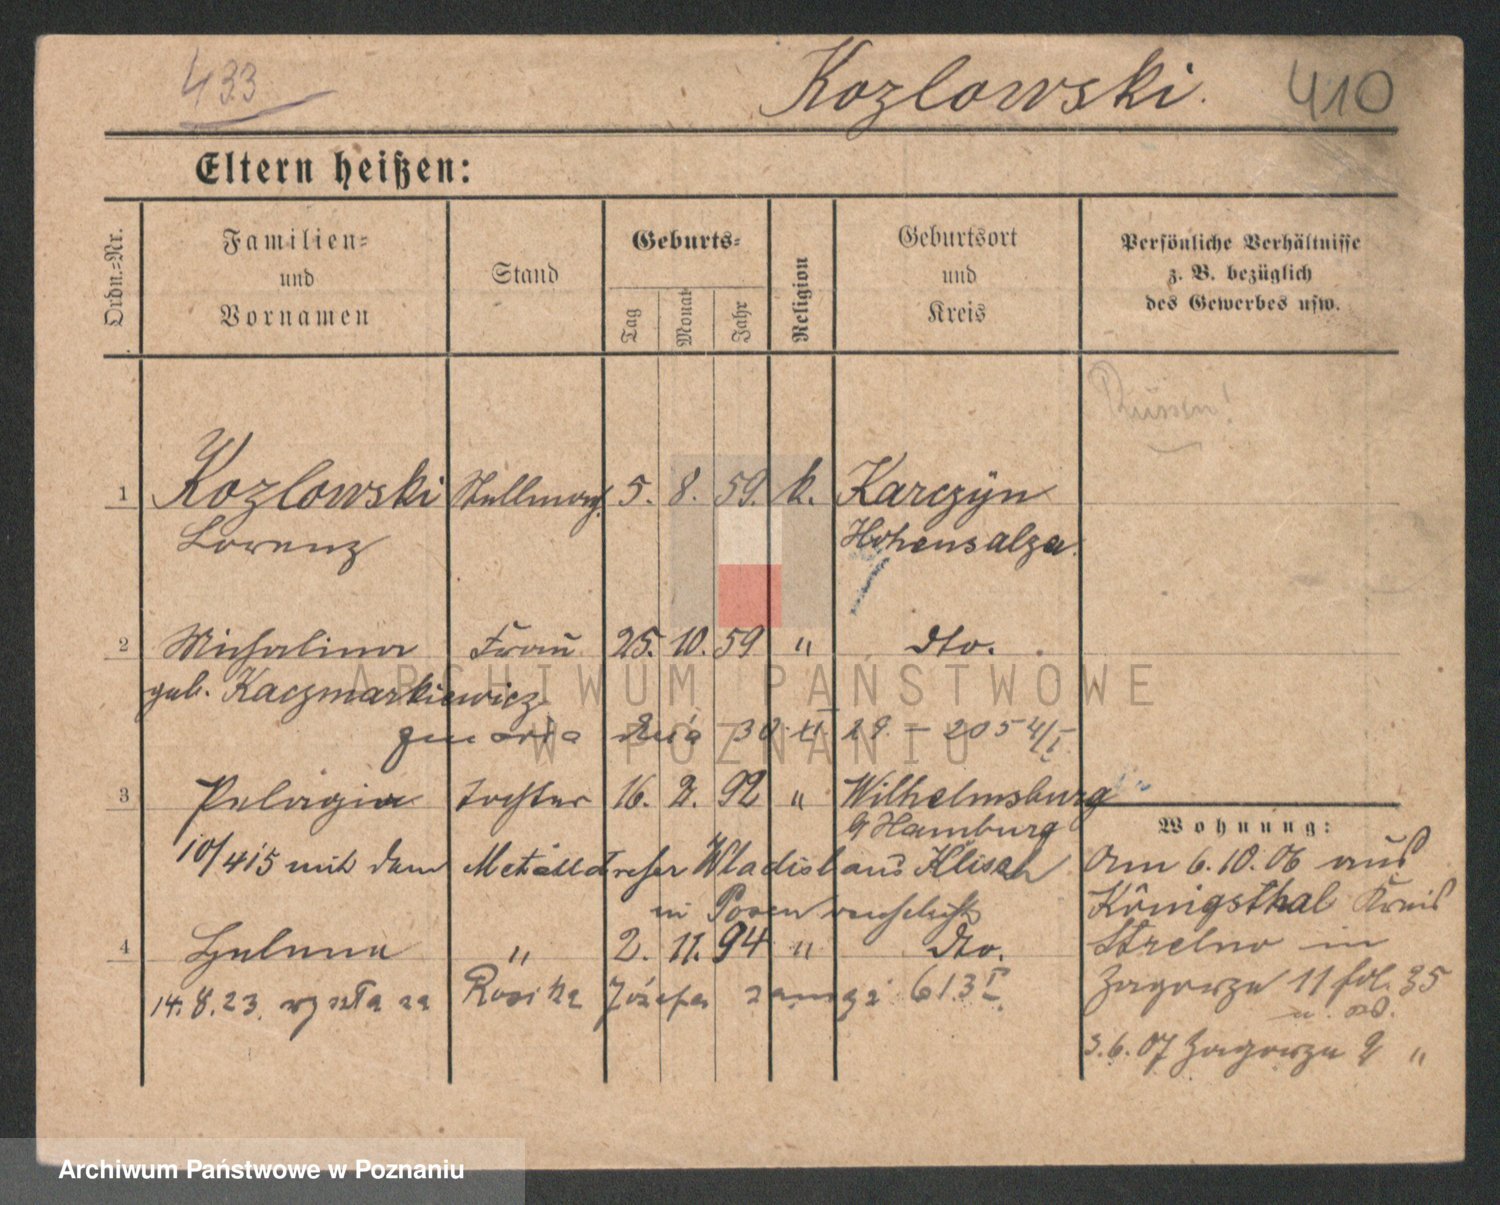 433
Kozlowski. 410
Eltern heißen:
Ordn.=Nr.
Familien=
und
Vornamen
Stand
Geburts=
Tag
Monat
Jahr
Religion
Geburtsort
und
Kreis
Persönliche Verhältnisse
z. B. bezüglich
des Gewerbes usw.
Russen!
1 Kozlowski Stellmach. 5. 8. 59. k. Karczyn
Lorenz Hohensalza.
2 Michalina Frau 25. 10. 59 " dto.
geb. Kaczmarkiewicz
zmarła dnia 30 XI 29. – 2054/I.
3 Pelagia Tochter 16. 2. 92 " Wilhelmsburg
Hamburg
10/415 mit dem Metalldreher Wladislaus Klisch
in Posen verehelicht
4 Helena " 2. 11. 94 " dto.
14. 8. 23. wyszła za Józefa 613 I.
Wohnung:
Am 6. 10. 06 aus
Königsthal Kreis
Strelno in
Zagorze 11 fol. 35
3. 6. 07 Zagorze 9 "
ARCHIWUM PAŃSTWOWE
W POZNANIU
Archiwum Państwowe w Poznaniu